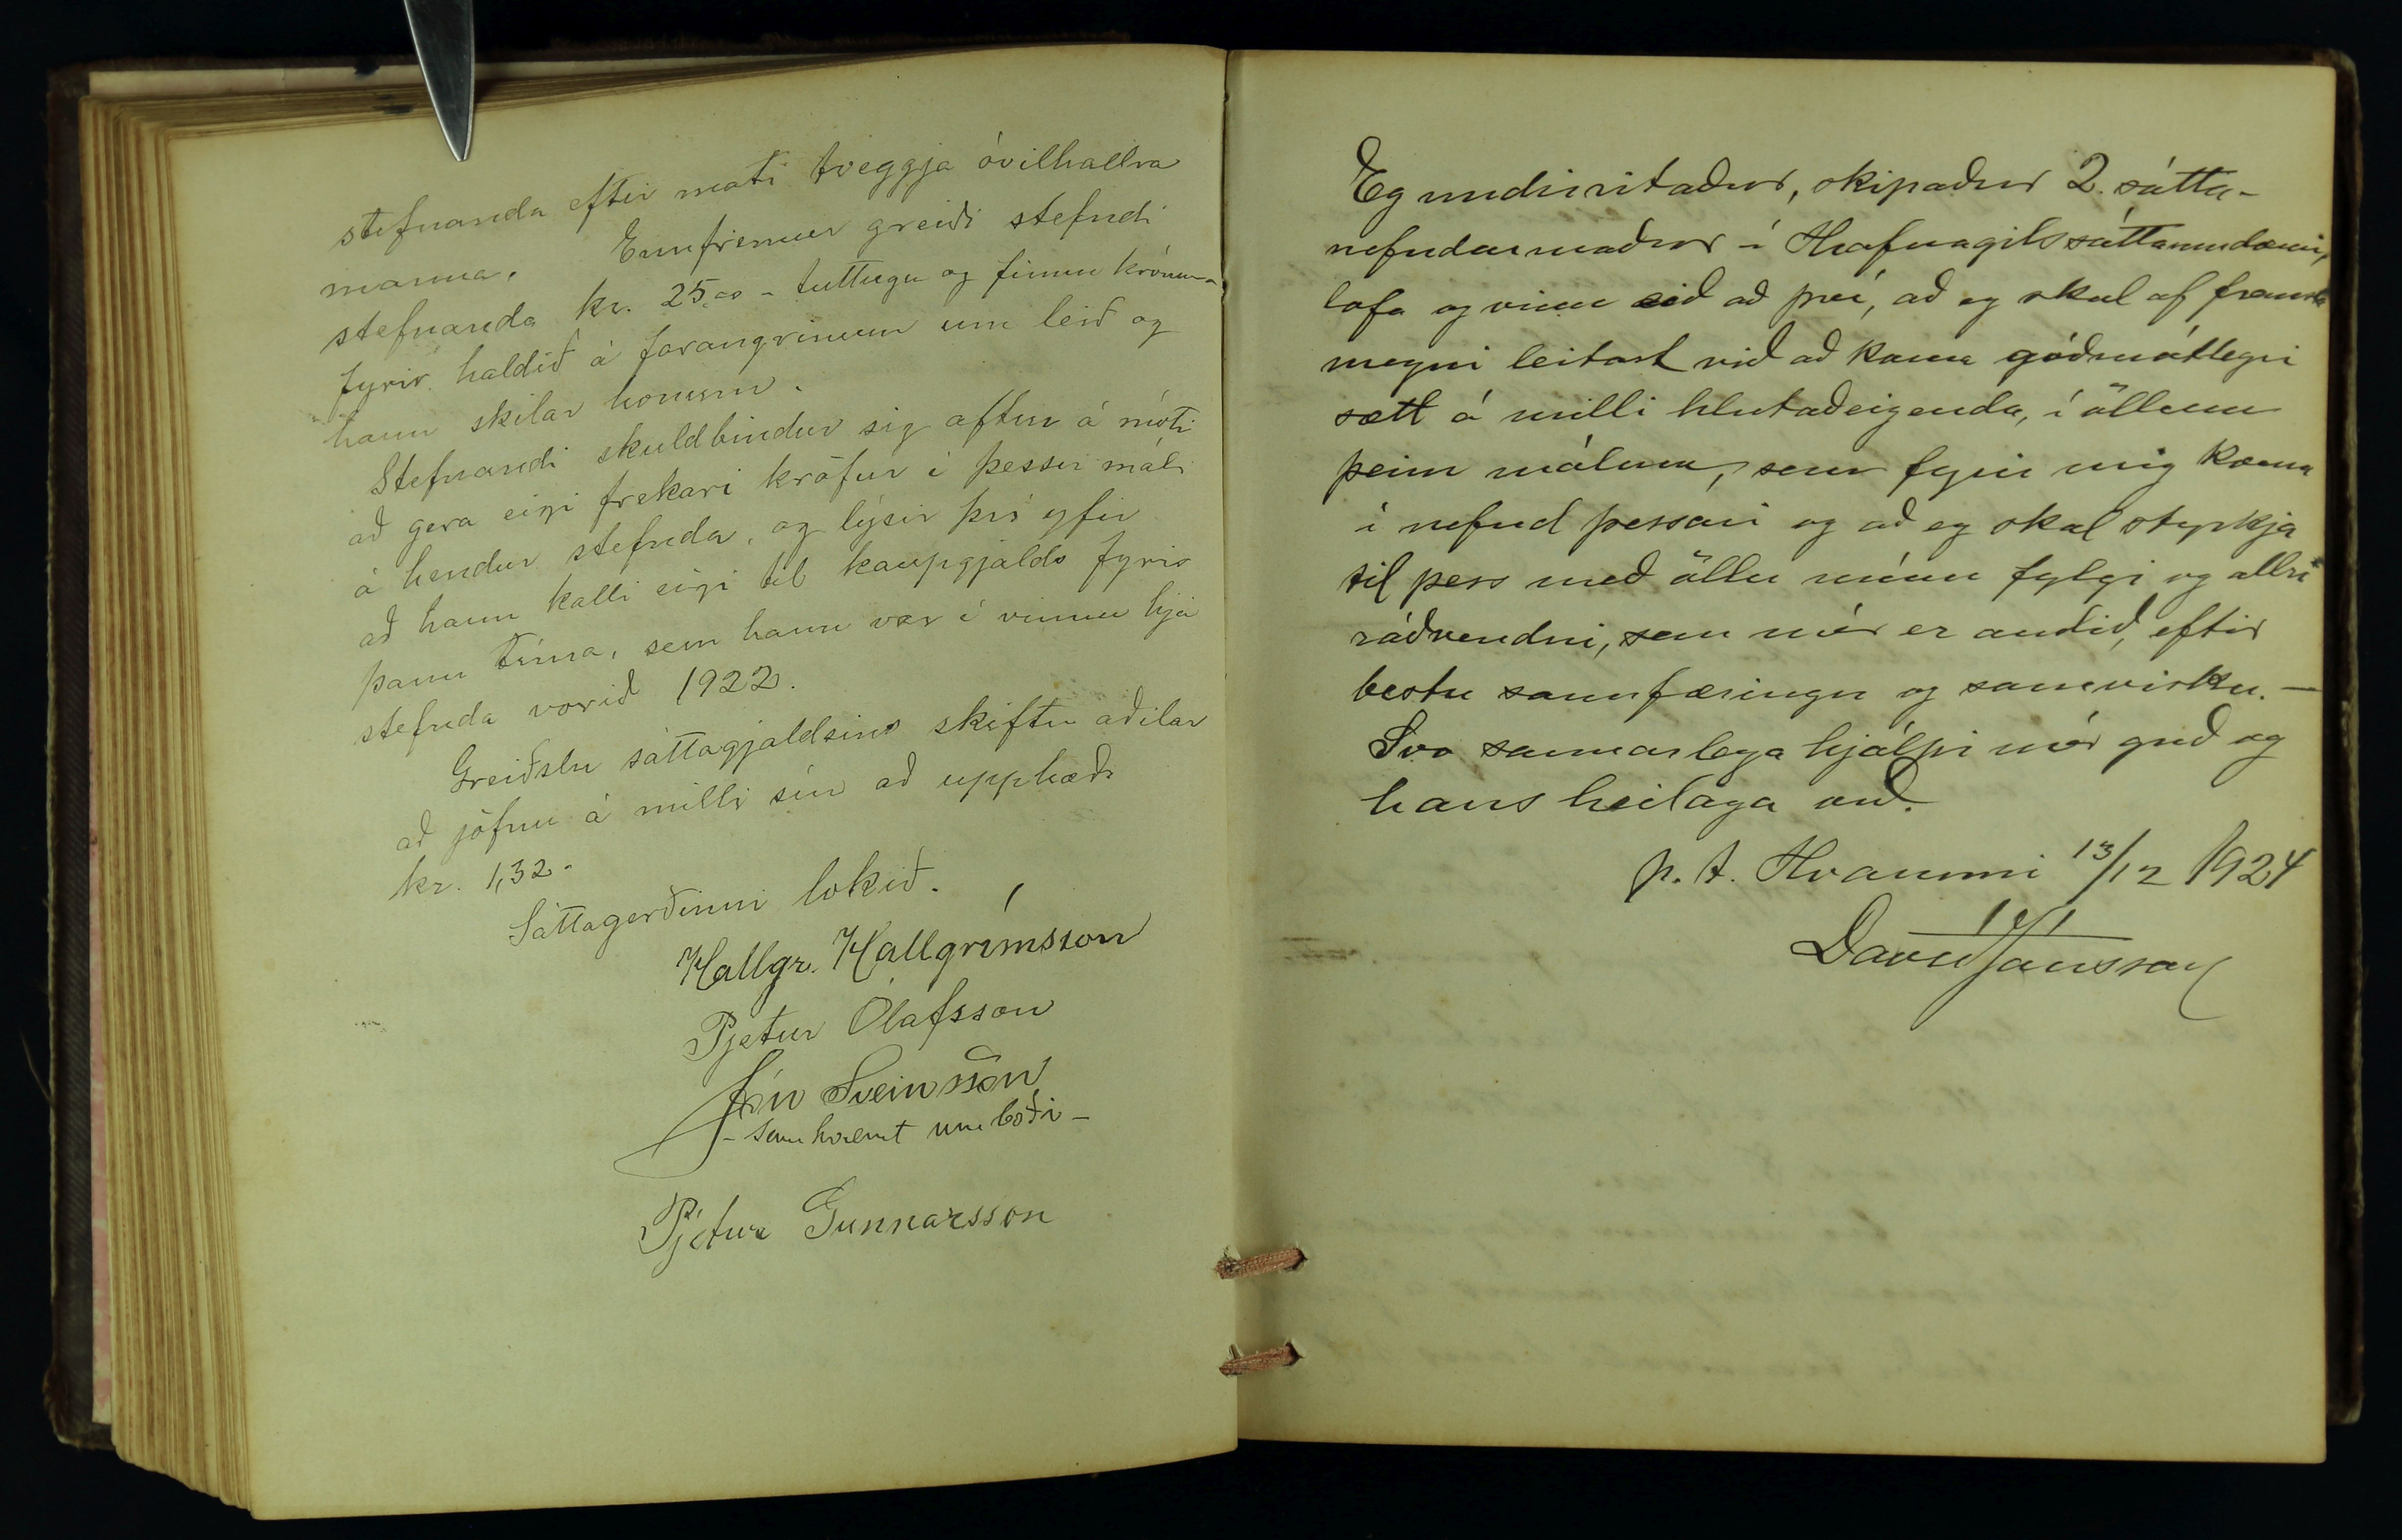 stefnanda eftir mati tveggja óvilhallra
manna. Ennfremur greiði stefndi
stefnanda kr. 25.00 - tuttugu og fimm krónur -
fyrir haldið á farangrinum um leið og
hann skilar honum.
Stefnandi skuldbindur sig aftur á móti
að gera eigi frekari kröfur í þessu máli
á hendur stefnda, og lýsir því yfir
að hann kalli eigi til kaupgjalds fyrir
þann tíma, sem hann var í vinnu hjá
stefnda vorið 1922.
Greiðslu sáttagjaldsins skiftu aðilar
að jöfnu á milli sín að upphæð
kr. 1,32.
Sáttagerðinni lokið.
Hallgr. Hallgrímsson
Pjetur Ólafsson
Jón Sveinsson
- samkvæmt umboði -
Pjetur Gunnarsson
Eg undirritaður, skipaður 2. sátta-
nefndarmaður í Hrafnagilssáttaumdæmi,
lofa og vinn eið að því, að eg skal af fremsta
megni leitast við að koma góðmótlegri
sætt á milli hlutaðeigenda, í öllum
þeim málum, sem fyrir mig koma
í nefnd þessari og að eg skal styrkja
til þess með öllu mínu fylgi og allri
ráðvendni, sem mér er auðið, eftir
bestu sannfæringu og samvisku. -
Svo sannarlega hjálpi mér guð og
hans heilaga orð.
p. t. Hvammi 13/12 1924
Davíð Jónsson